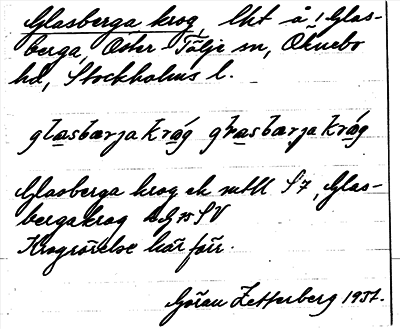 Glasberga krog lht å 1 Glas-
berga, Öster-Tälje sn, Öknebo
hd, Stockholms l.
glasbærja kråg glasbærja kråg
Glasberga krog ek mtll S 7, Glas-
bergakrog SV
Krogrörelse här förr.
Göran Zetterberg 1951.